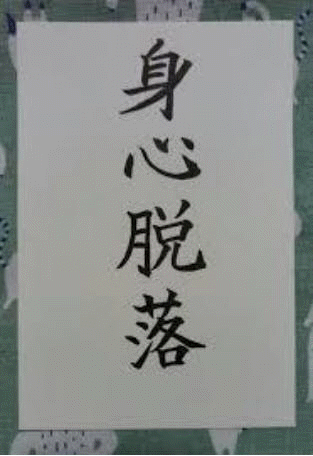 身心脱落